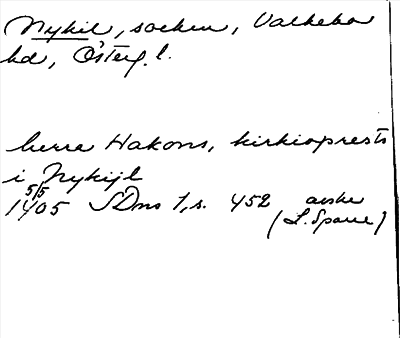 Nykil, socken, Valkebo
hd, Östergl.
herra Hakons, kirkioprests
i Nykijl
5/5
1405 SDns 1, s. 452 avskr
(L. Sparre)